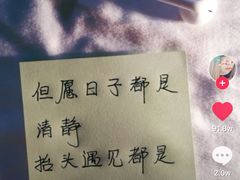 但愿日子都是
清静
抬头遇见都是
91.8w
2.0w